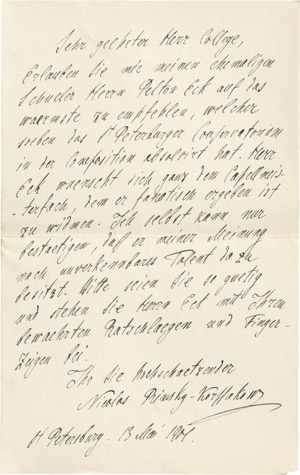 Sehr geehrter Herr College,
Erlauben Sie mir meinen ehemaligen
Schueler Herrn Pelton Eck auf das
waermste zu empfehlen, welcher
soeben das St Petersburger Conservatorium
in der Composition absolvirt hat. Herr
Eck wuenscht sich ganz dem Capellmeis-
-terfach, dem er fanatisch ergeben ist
zu widmen. Ich selbst kann nur
bestaetigen, daß er meiner Meinung
nach unverkennbares Talent dazu
besitzt. Bitte seien Sie so guetig
und stehen Sie Herrn Eck mit Ihren
bewaehrten Ratschlaegen und Finger-
Zeigen bei.
Ihr Sie hochschaetzender
Nicolas Rimsky-Korssakow
St Petersburg. 13 Mai